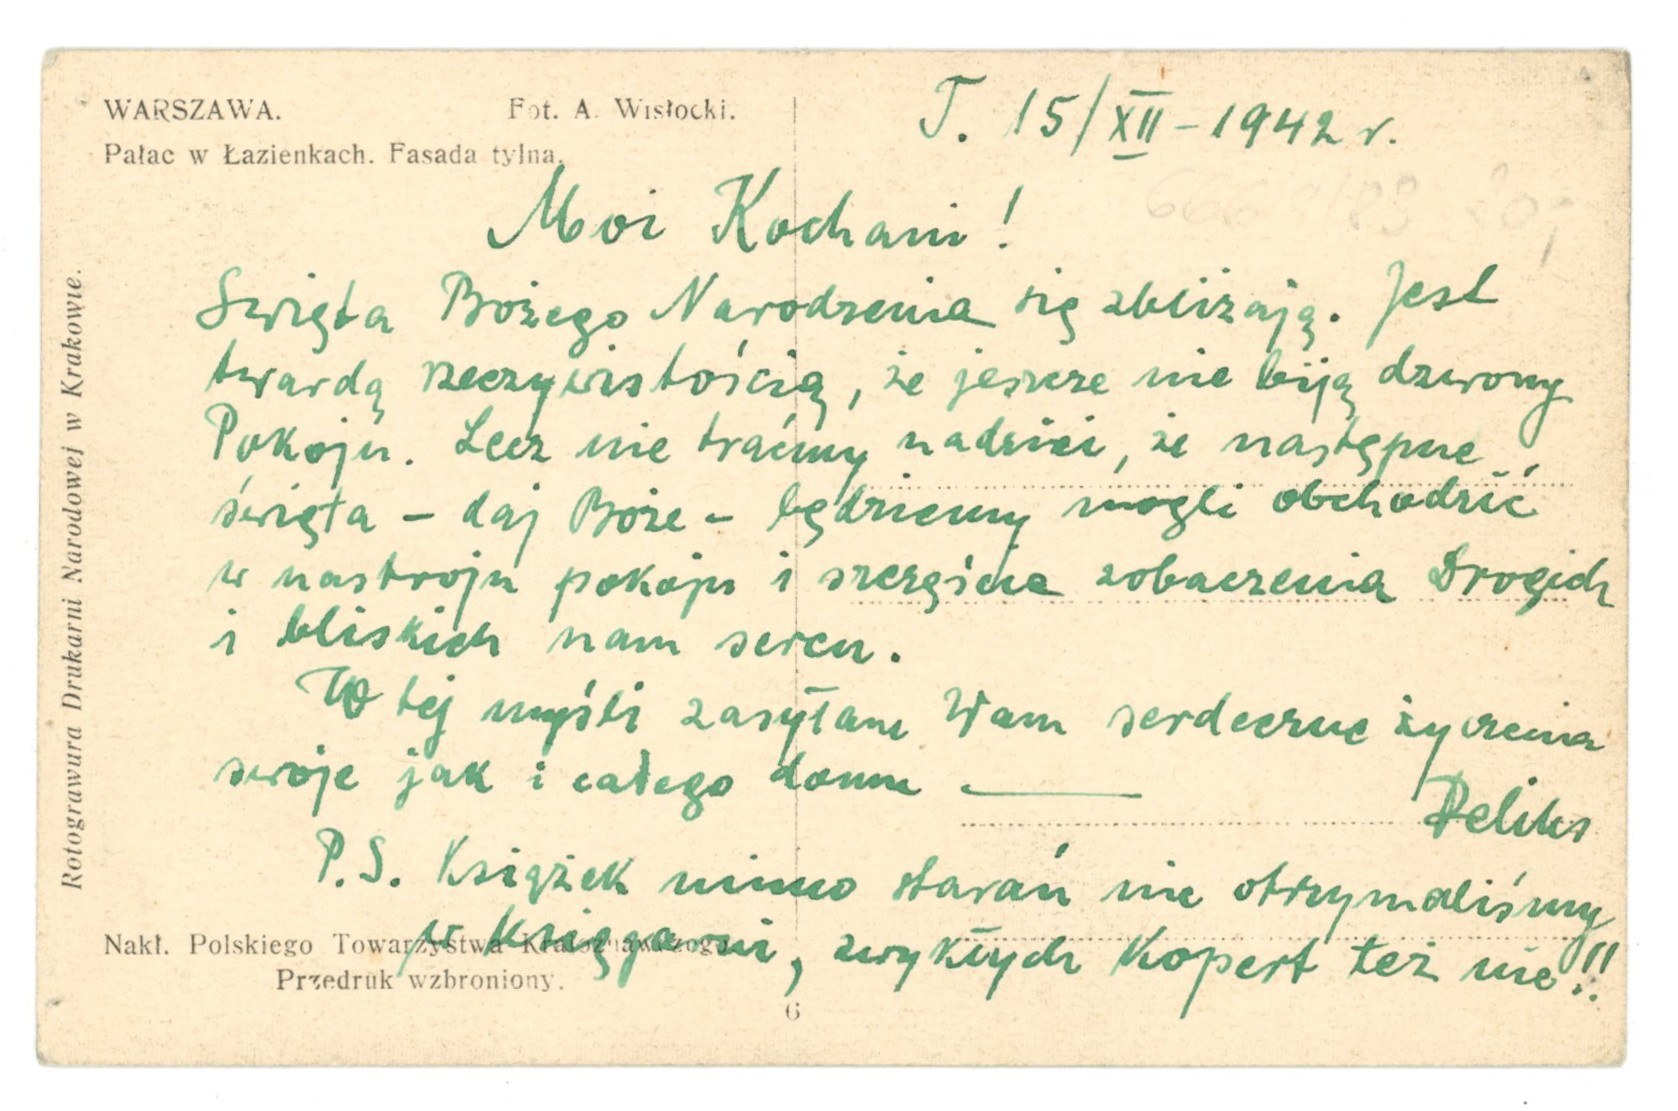 WARSZAWA. Fot. A. Wisłocki.
Pałac w Łazienkach. Fasada tylna.
T. 15/XII – 1942 r.
Moi Kochani!
Święta Bożego Narodzenia się zbliżają. Jest
twardą rzeczywistością, że jeszcze nie biją dzwony
Pokoju. Lecz nie traćmy nadziei, że następne
święta – daj Boże – będziemy mogli obchodzić
w nastroju pokoju i szczęście zobaczenia Drogich
i bliskich nam sercu.
W tej myśli zasyłam Wam serdeczne życzenia
swoje jak i całego domu
Feliks
P.S. Książek mimo starań nie otrzymaliśmy
w Księgarni, zwykłych Kopert też nie!!
Nakł. Polskiego Towarzystwa Krajoznawczego
Przedruk wzbroniony.
6
Rotograwura Drukarni Narodowej w Krakowie.